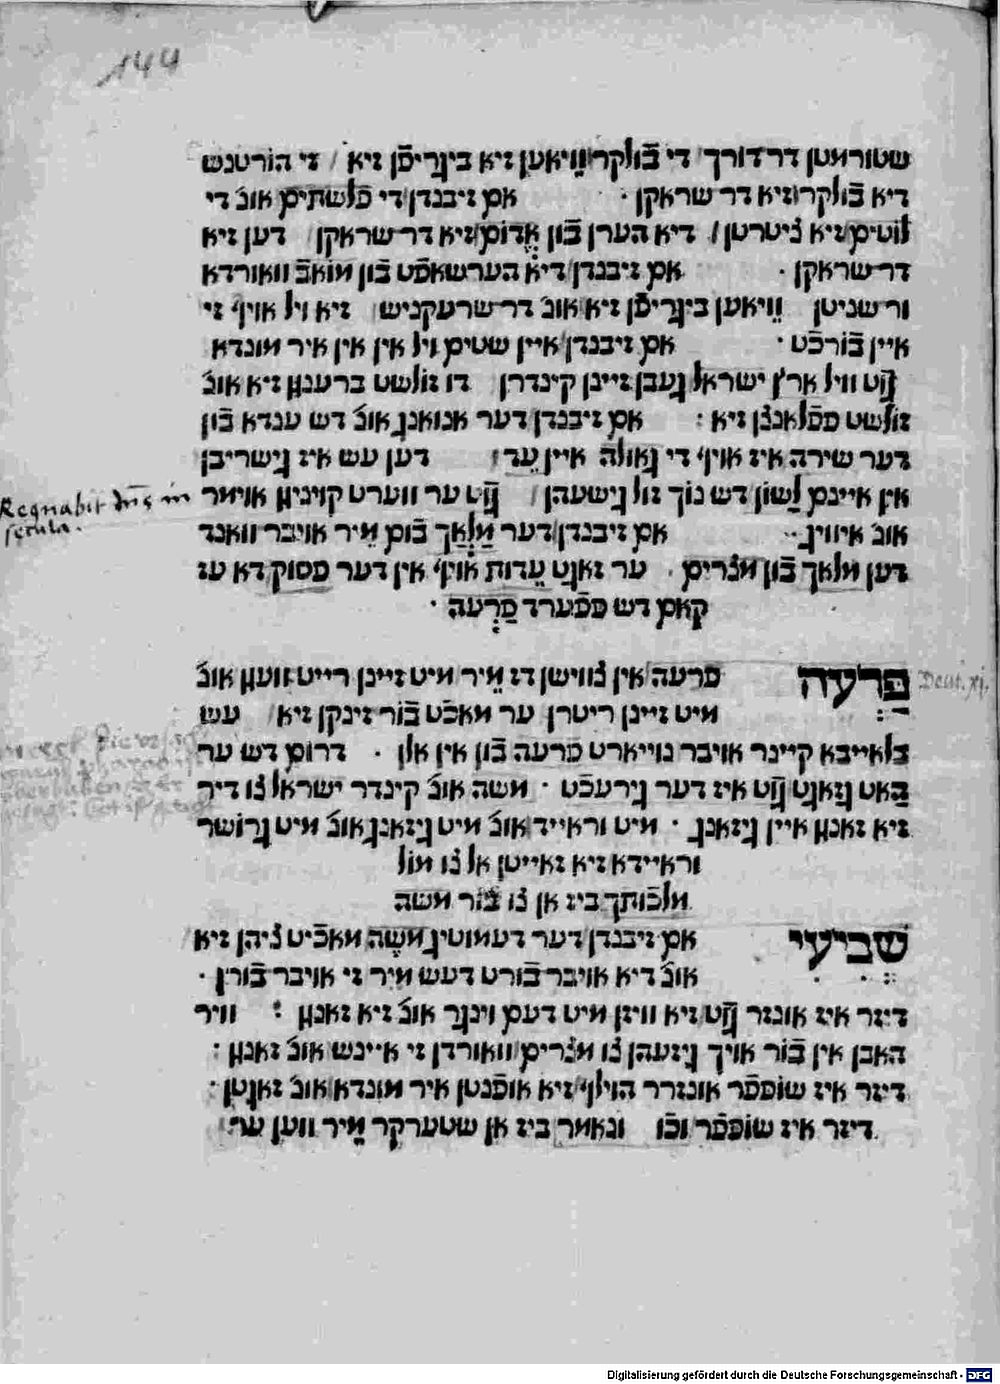 144
שטורמטן דר דורך די בֿולקר וויאען זיא ביגריפֿן זיא / זי הורטנש
דיא בֿולקר זיא דר שראקן · אם זיבנדן די פלשתים אונ׳ די
לוטים זיא ציטרטן / דיא הערן בֿון אֱדוֹם זיא דר שראקן דען זיא
דר שראקן · אם זיבנדן דיא הערשאפֿט בֿון מואבֿ וואורדא
ור שניטן וויאען ביגריפֿן זיא אונ׳ דר שרעקניש זיא ויל אויף זי
איין בֿורכֿט · אם זיבנדן איין שטים ויל אין אין איר מונדא
גֿוט וויל ארץ ישראל געבן זיינן קינדרן דו זולשט ברענגן זיא אונ׳
זולשט פפֿלאנצן זיא : אם זיבנדן דער אנואנג אונ׳ דש ענדא בֿון
דער שירה איז אויף די גאולה איין עֵד דען עש איז גישריבן
אין איינם לָשׁוֹן דש נוך זול גישעהן / גֿוט ער ווערט קויניגן אוימר
אונ׳ איוויג · אם זיבנדן דער מַלְאַך בֿום מֵיר אויבר וואנד
דען מלאך בֿון מצרים ער זאגט עֵדות אויף אין דער פסוק דא עז
קאם דש פפֿערד פַרְעֹה ·
Regnabit dns in
secula.
פַּרְעֹה פרעה אין צווישן דז מֵיר מיט זיינן רייט וועגן אונ׳
Deut. xj.
מיט זיינן ריטרן ער מאכֿט בֿור זינקן זיא / עש
בלאייבא קיינר אויבר נוייארט פרעה בֿון אין אלן · דרום דש ער
האט גזאגט גֿוט איז דער גירעכֿט · משה אונ׳ קינדר ישראל צו דיר
זיא זאגן איין גיזאנג · מיט וראייד אונ׳ מיט גיזאנג אונ׳ מיט גרושר
וראיידא זיא זאייטן אל צו מול
מלכותך ביז אן צו בֿור משה
שְׁבִיעִי אם זיבנדן דער דעמוטיג משֶה מאכֿיט ציהן זיא
אונ׳ דיא אויבר בֿורט דעש מיר זי אויבר בֿורן ·
דיזר איז אונזר גֿוט זיא וויזן מיט דעם וינגר אונ׳ זיא זאגן : וויר
האבן אין בֿור אויך גיזעהן צו מצרים וואורדן זי איינש אונ׳ זאגן :
דיזר איז שופפֿר אונזרר הוילף זיא אופֿנטן איר מונדא אונ׳ זאגטן ·
דיזר איז שופפֿר וכֿו ונאמר ביז אן שטערקר מֵיר ווען ער
Digitalisierung gefördert durch die Deutsche Forschungsgemeinschaft - DFG